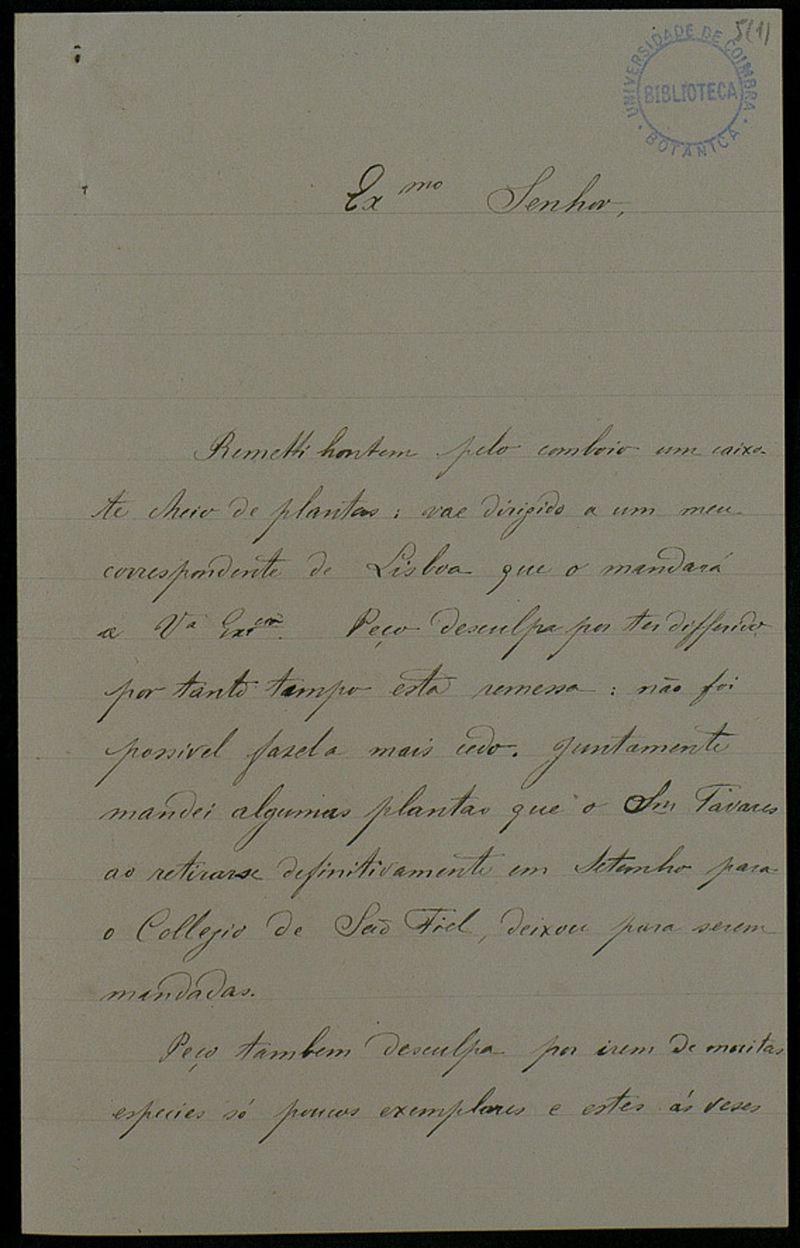 5(1)
UNIVERSIDADE DE COIMBRA
BIBLIOTECA
BOTANICA
Ex mo Senhor,
Remetti hontem pelo comboio um caixo-
te cheio de plantas; vae dirigido a um meu
correspondente de Lisboa que o mandará
a Va Excia. Peço desculpa por ter differido
por tanto tempo esta remessa: não foi
possivel fazela mais cedo. Juntamente
mandei algumas plantas que o Snr Tavares
ao retirarse definitivamente em Setembro para
o Collegio de São Fiel, deixou para serem
mandadas.
Peço tambem desculpa por irem de muitas
especies só poucos exemplares e estes ás veses